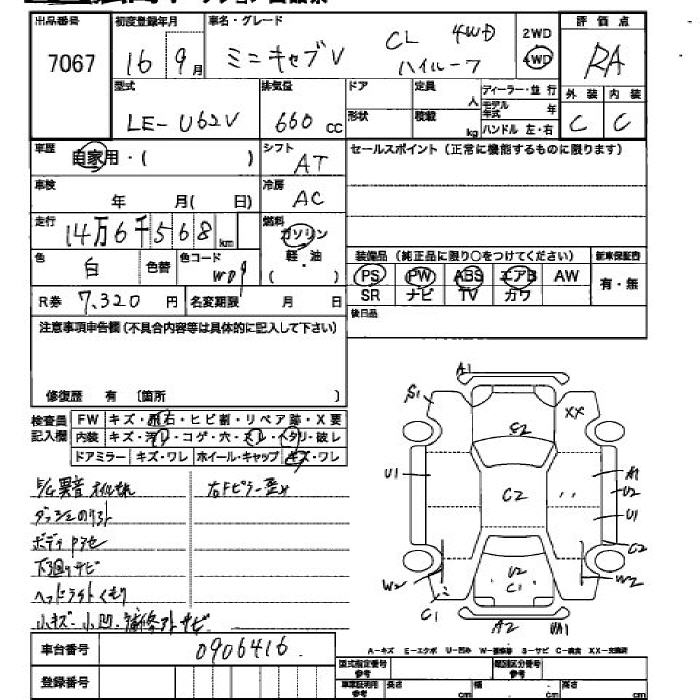 出品番号 初度登録年月 車名・グレード 2WD 評価点
7067 16 9月 ミニキャブV CL 4WD ハイルーフ 4WD RA
型式 排気量 ドア 定員 人 ディーラー・並行 外装 内装
LE-U62V 660cc 形状 積載 kg モデル年式 年 C C
ハンドル 左・右
車歴 自家用・( ) シフト AT セールスポイント(正常に機能するものに限ります)
車検 年 月( 日) 冷房 AC
走行 14万6千568km 燃料 ガソリン
軽・油
( )
色 白 色替 色コード W09
装備品(純正品に限り○をつけてください) 新車保証書
PS PW ABS エアB AW 有・無
SR ナビ TV カワ
R券 7,320円 名変期限 月 日 後日品
注意事項申告欄(不具合内容等は具体的に記入して下さい)
修復歴 有 〔箇所 〕
検査員記入欄 FW キズ・飛石・ヒビ割・リペア跡・X要
内装 キズ・汚レ・コゲ・穴・スレ・ヘタリ・破レ
ドアミラー キズ・ワレ ホイール・キャップ キズ・ワレ
異音 オイルもれ 右Fピラー歪み
ボディ
下廻りサビ
ヘッドライトくもり
小キズ 小凹 補修アト サビ
A1
S1 XX
S2
U1 C2 A1
U2
U1
C2
W2 U2 W2
C1
C1 A2 W1
A-キズ E-エクボ U-凹み W-補修跡 S-サビ C-腐食 XX-交換済
車台番号 0906416
登録番号
型式指定番号 参考 類別区分番号 参考
車庫証明用 参考 長さ cm 幅 cm 高さ cm